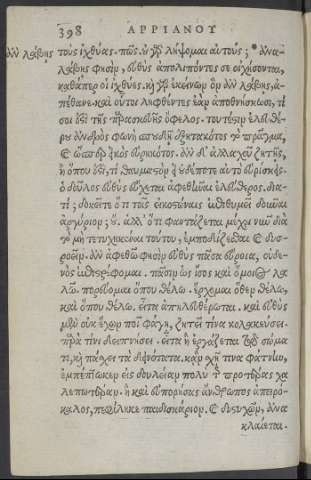 398 ΑΡΡΙΑΝΟΥ
ἂν λάβῃς τοὺς ἰχθύας. πῶς οὖν γὰρ λήψομαι αὐτούς; ἂν ἀνα-
λάβῃς φησὶν, εὐθὺς ἀπολιπόντες σε οἰχήσονται,
καθάπερ οἱ ἰχθύες. καὶ γὰρ ἐκείνων ὃν ἂν λάβῃς, ἀ-
πέθανε. καὶ οὗτοι ληφθέντες ἐὰν ἀποθνήσκωσι, τί
σοι ἔσται τῆς παρασκευῆς ὄφελος. τοῦτό ἐστιν ἐλευθέ-
ρου ἀνδρὸς φωνὴ σπουδῇ ἐξητακότος τὸ πρᾶγμα,
καὶ ὥσπερ εἰκὸς εὑρηκότος. ἂν δ' ἀλλαχοῦ ζητῇς,
ἢ ὅπου ἐστί, τί θαυμαστὸν εἰ οὐδέποτε αὐτὸ εὑρίσκῃς.
ὁ δοῦλος εὐθὺς εὔχεται ἀφεθῆναι ἐλεύθερος. δια-
τί; δοκεῖτε ὅτι τοῖς εἰκοστώναις ἐπιθυμεῖ δοῦναι
ἀργύριον; οὔ. ἀλλ' ὅτι φαντάζεται μέχρι νῦν διὰ
τὸ μὴ τετυχηκέναι τούτου, ἐμποδίζεσθαι καὶ δυσ-
ροεῖν. ἂν ἀφεθῶ φησὶν εὐθὺς πᾶσα εὔροια, οὐδε-
νὸς ἐπιστρέφομαι. πᾶσιν ὡς ἴσος καὶ ὅμοιος λα-
λῶ. πορεύομαι ὅπου θέλω. ἔρχομαι ὅθεν θέλω,
καὶ ὅπου θέλω. εἶτα ἀπηλευθέρωται. καὶ εὐθὺς
μὲν οὐκ ἔχων ποῖ φάγῃ, ζητεῖ τίνα κολακεύσει.
παρὰ τίνι δειπνήσει. εἶτα ἢ ἐργάζεται τῷ σώμα-
τι, καὶ πάσχει τὰ δεινότατα. κἂν σχῇ τινα φάτνην,
ἐμπέπτωκεν εἰς δουλείαν πολὺ τῆς προτέρας χα
λεπωτέραν. ἢ καὶ εὐπορήσας ἄνθρωπος ἀπειρό-
καλος, πεφίληκε παιδισκάριον. καὶ δυστυχῶν, ἀνα
κλαίεται.